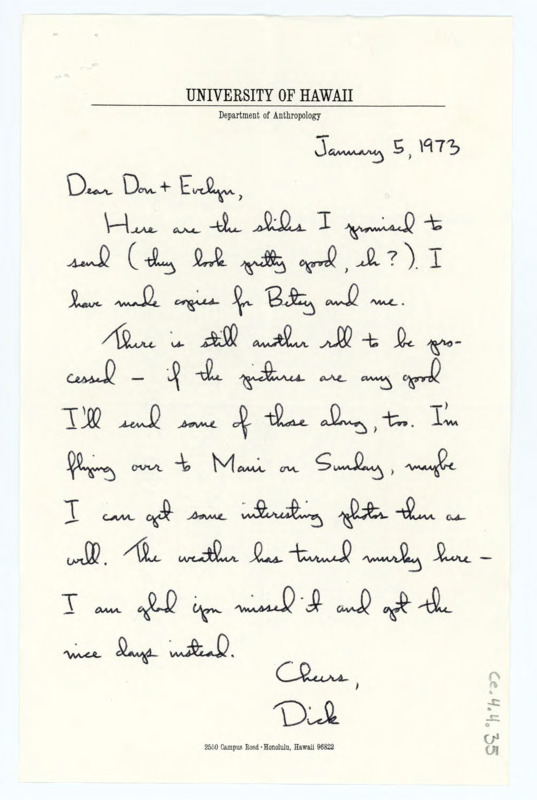 UNIVERSITY OF HAWAII
Department of Anthropology
January 5, 1973
Dear Don + Evelyn,
Here are the slides I promised to
send (they look pretty good, eh?). I
have made copies for Betsy and me.
There is still another roll to be pro-
cessed – if the pictures are any good
I'll send some of those along, too. I'm
flying over to Maui on Sunday, maybe
I can get some interesting photos then as
well. The weather has turned murky here –
I am glad you missed it and got the
nice days instead.
Cheers,
Dick
2550 Campus Road · Honolulu, Hawaii 96822
Ce.4.4.35